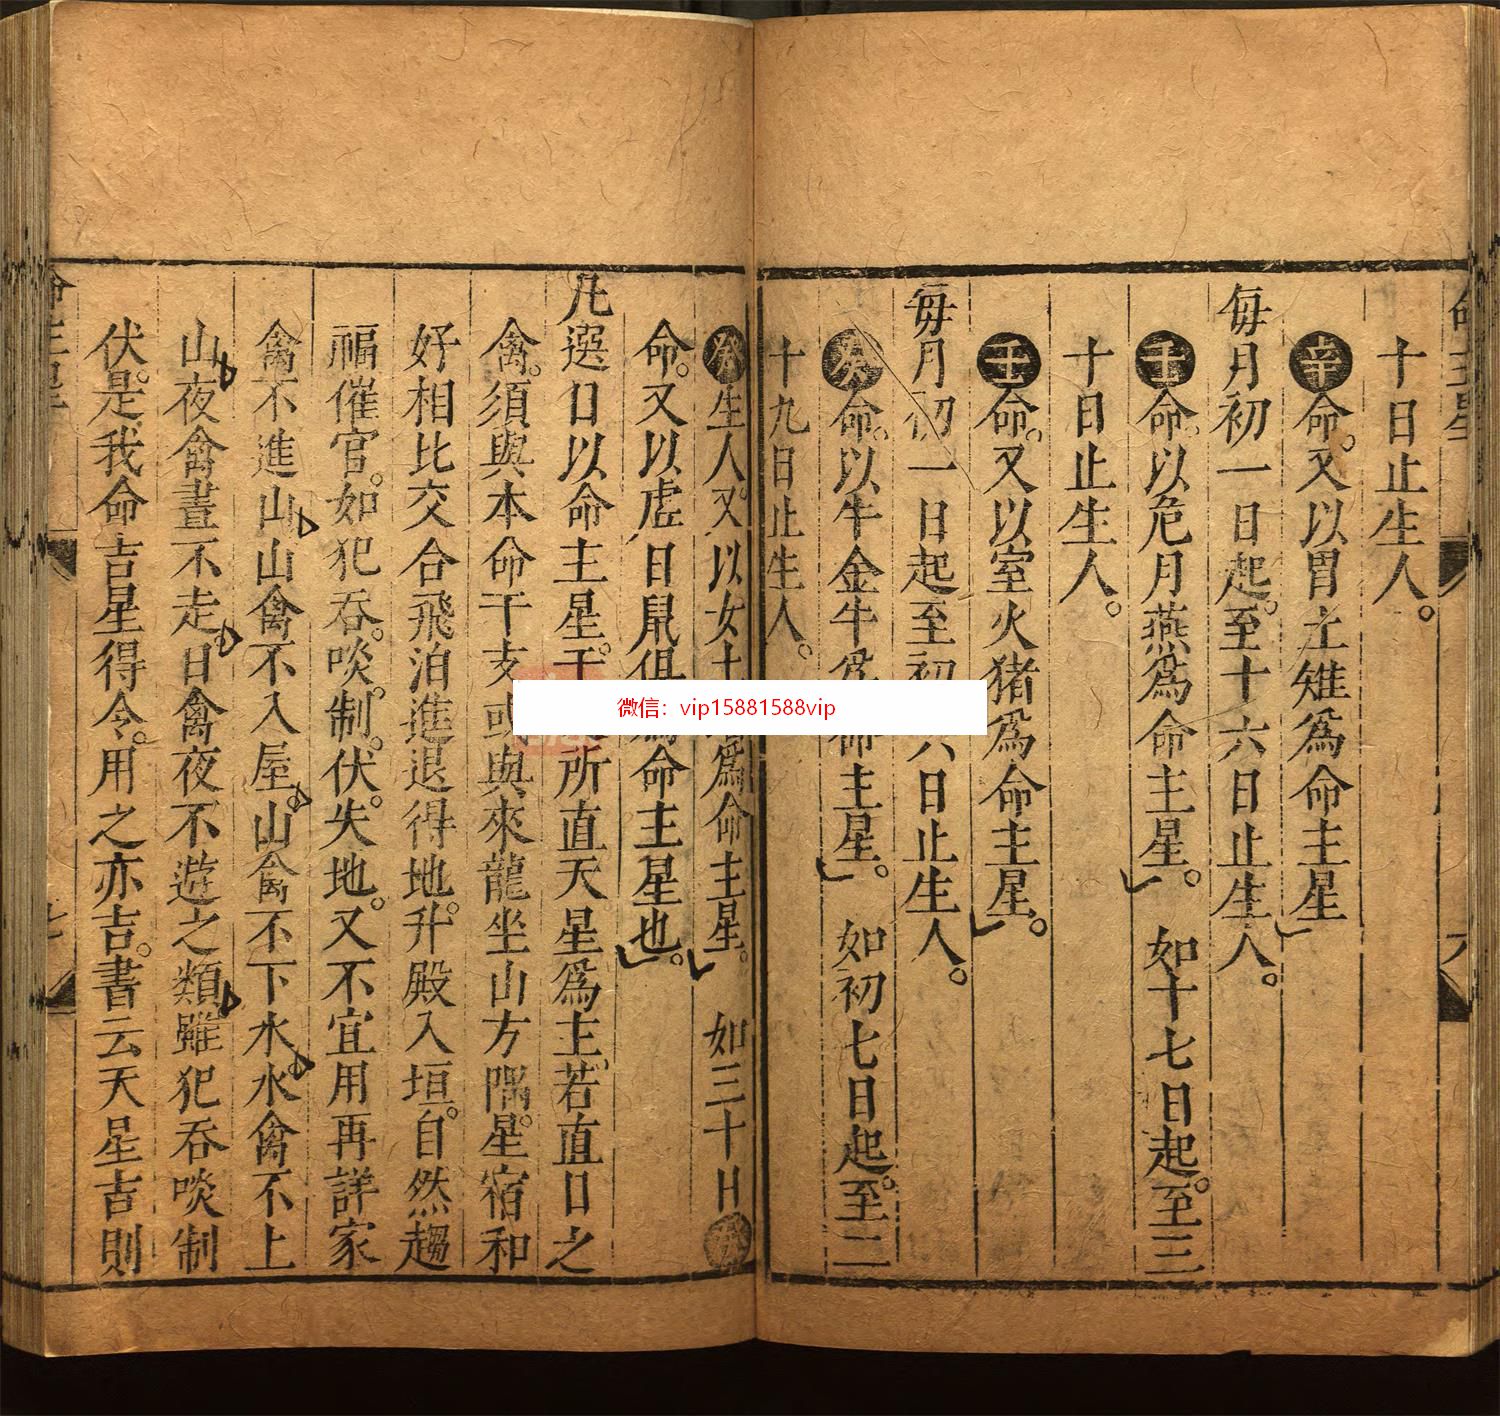 十日止生人。
辛命。又以胃土雉爲命主星
每月初一日起。至十六日止生人。
壬命。以危月燕爲命主星。 如十七日起。至三
十日止生人。
壬命。又以室火猪爲命主星。
每月初一日起至初 六日止生人。
癸命。以牛金牛爲命主星。 如初七日起。至二
十九日止生人。
癸生人。又以女土 爲命主星。 如三十日癸
命。又以虛日鼠俱 命主星也。
凡選日以命主星。干 所直天星爲主。若直日之
禽。須與本命干支或與來龍坐山方隅。星宿和
好相比交合飛泊進退得地。升殿入垣。自然趨
福催官。如犯吞。啖制。伏。失地。又不宜用再詳家
禽不進山山禽不入屋。山禽不下水水禽不上
山夜禽晝不走。日禽夜不遊之類。雖犯吞啖制
伏。是我命吉星得令。用之亦吉。書云天星吉則
命主星
微信：vip15881588vip